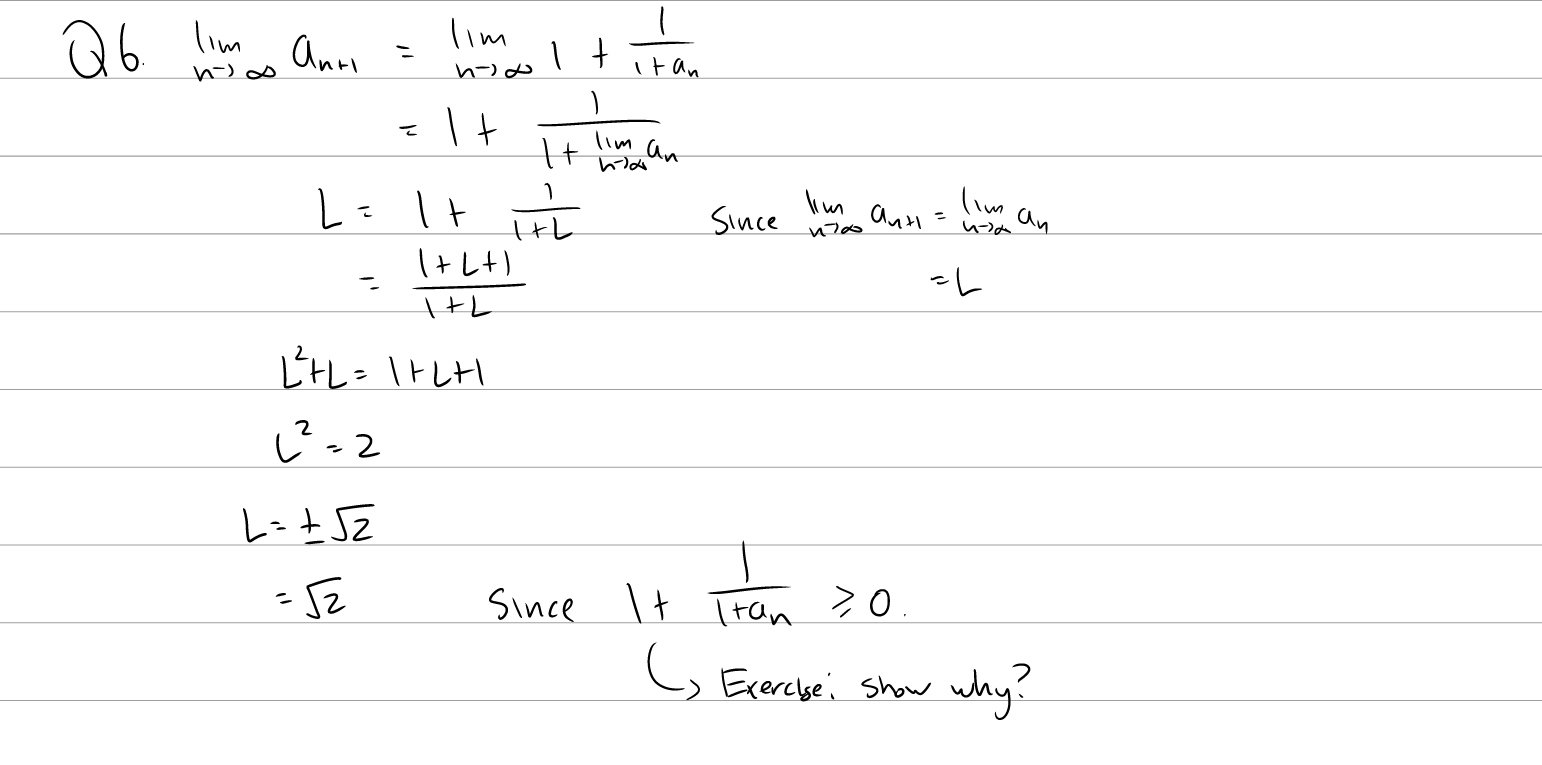 Q6. lim_{n→∞} a_{n+1} = lim_{n→∞} 1 + 1/(1+a_n)
= 1 + 1/(1 + lim_{n→∞} a_n)
L = 1 + 1/(1+L) Since lim_{n→∞} a_{n+1} = lim_{n→∞} a_n
= (1+L+1)/(1+L) = L
L²+L = 1+L+1
L² = 2
L = ±√2
= √2 Since 1 + 1/(1+a_n) ⩾ 0.
↳ Exercise: show why?